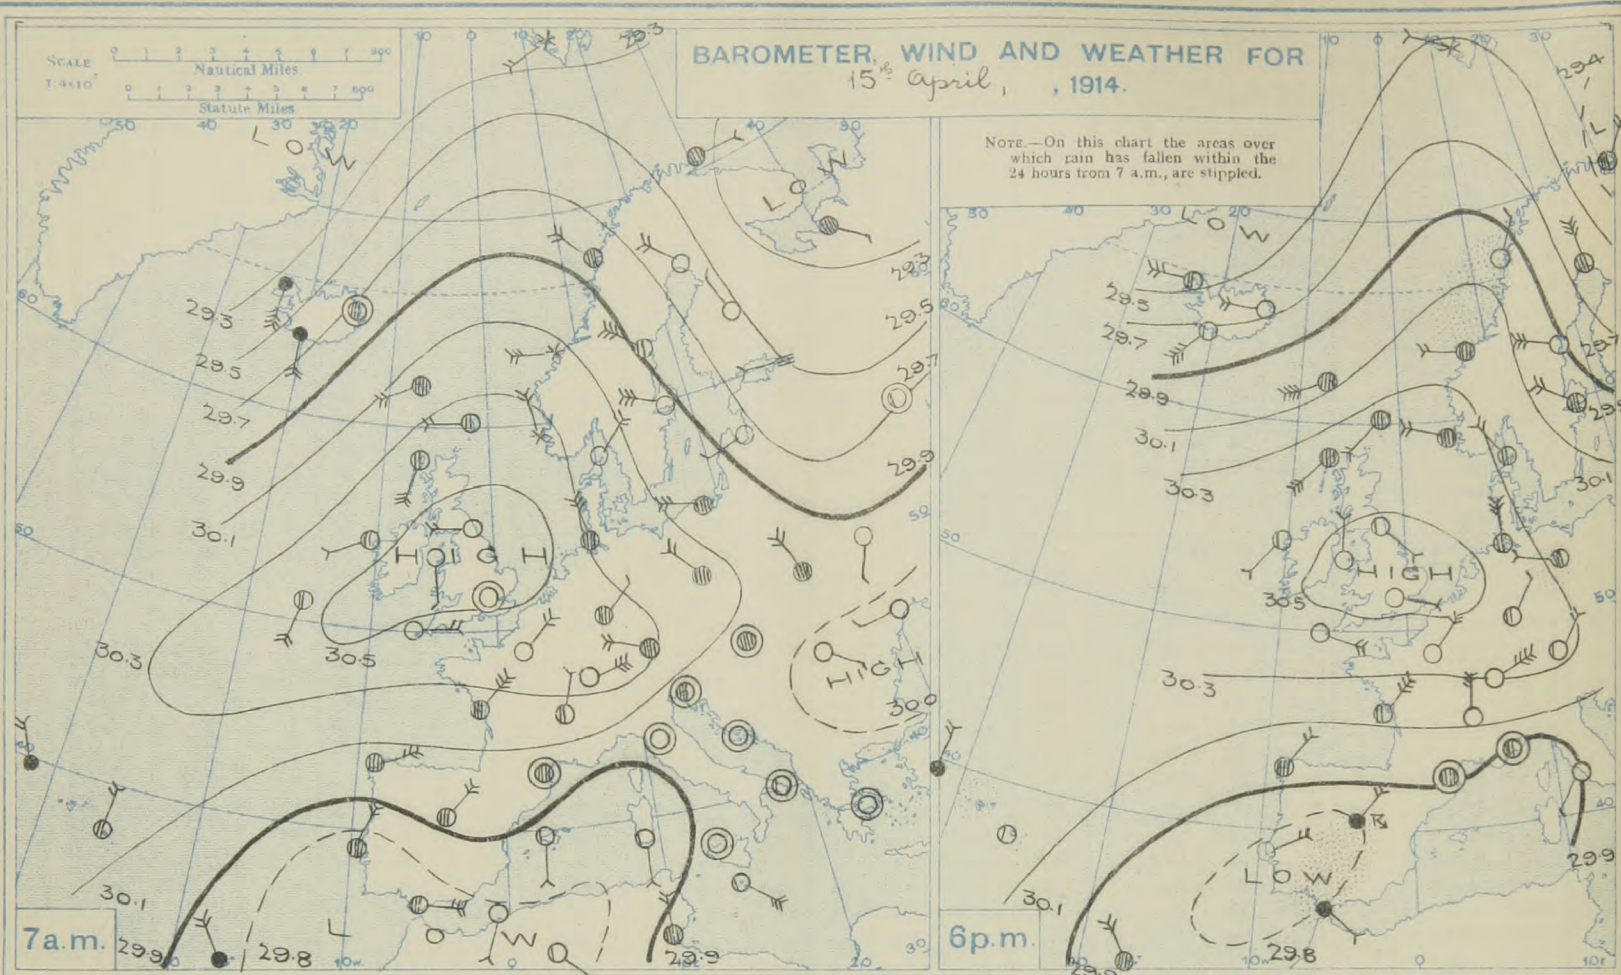 SCALE
1:4×10⁷
0 1 2 3 4 5 6 7 800
Nautical Miles
0 1 2 3 4 5 6 7 800
Statute Miles
BAROMETER, WIND AND WEATHER FOR
15th April, , 1914.
NOTE.—On this chart the areas over
which rain has fallen within the
24 hours from 7 a.m., are stippled.
10 0 10 20 29.3
50 40 30 20
LOW
40
LOW
29.3
29.3
29.5
29.5
29.7
29.7
29.9
29.9
30.1
HIGH
30.3
30.5
HIGH
30.0
30.1
29.9
29.8
LOW
29.9
10w 0 20
30
7a.m.
10 0 20 30
29.4
50 40 30 20
LOW
L
29.5
29.7
29.7
29.9
29.9
30.1
30.1
30.3
HIGH
30.5
30.3
LOW
30.1
29.9
29.8
29.9
10w 0 10E
6p.m.